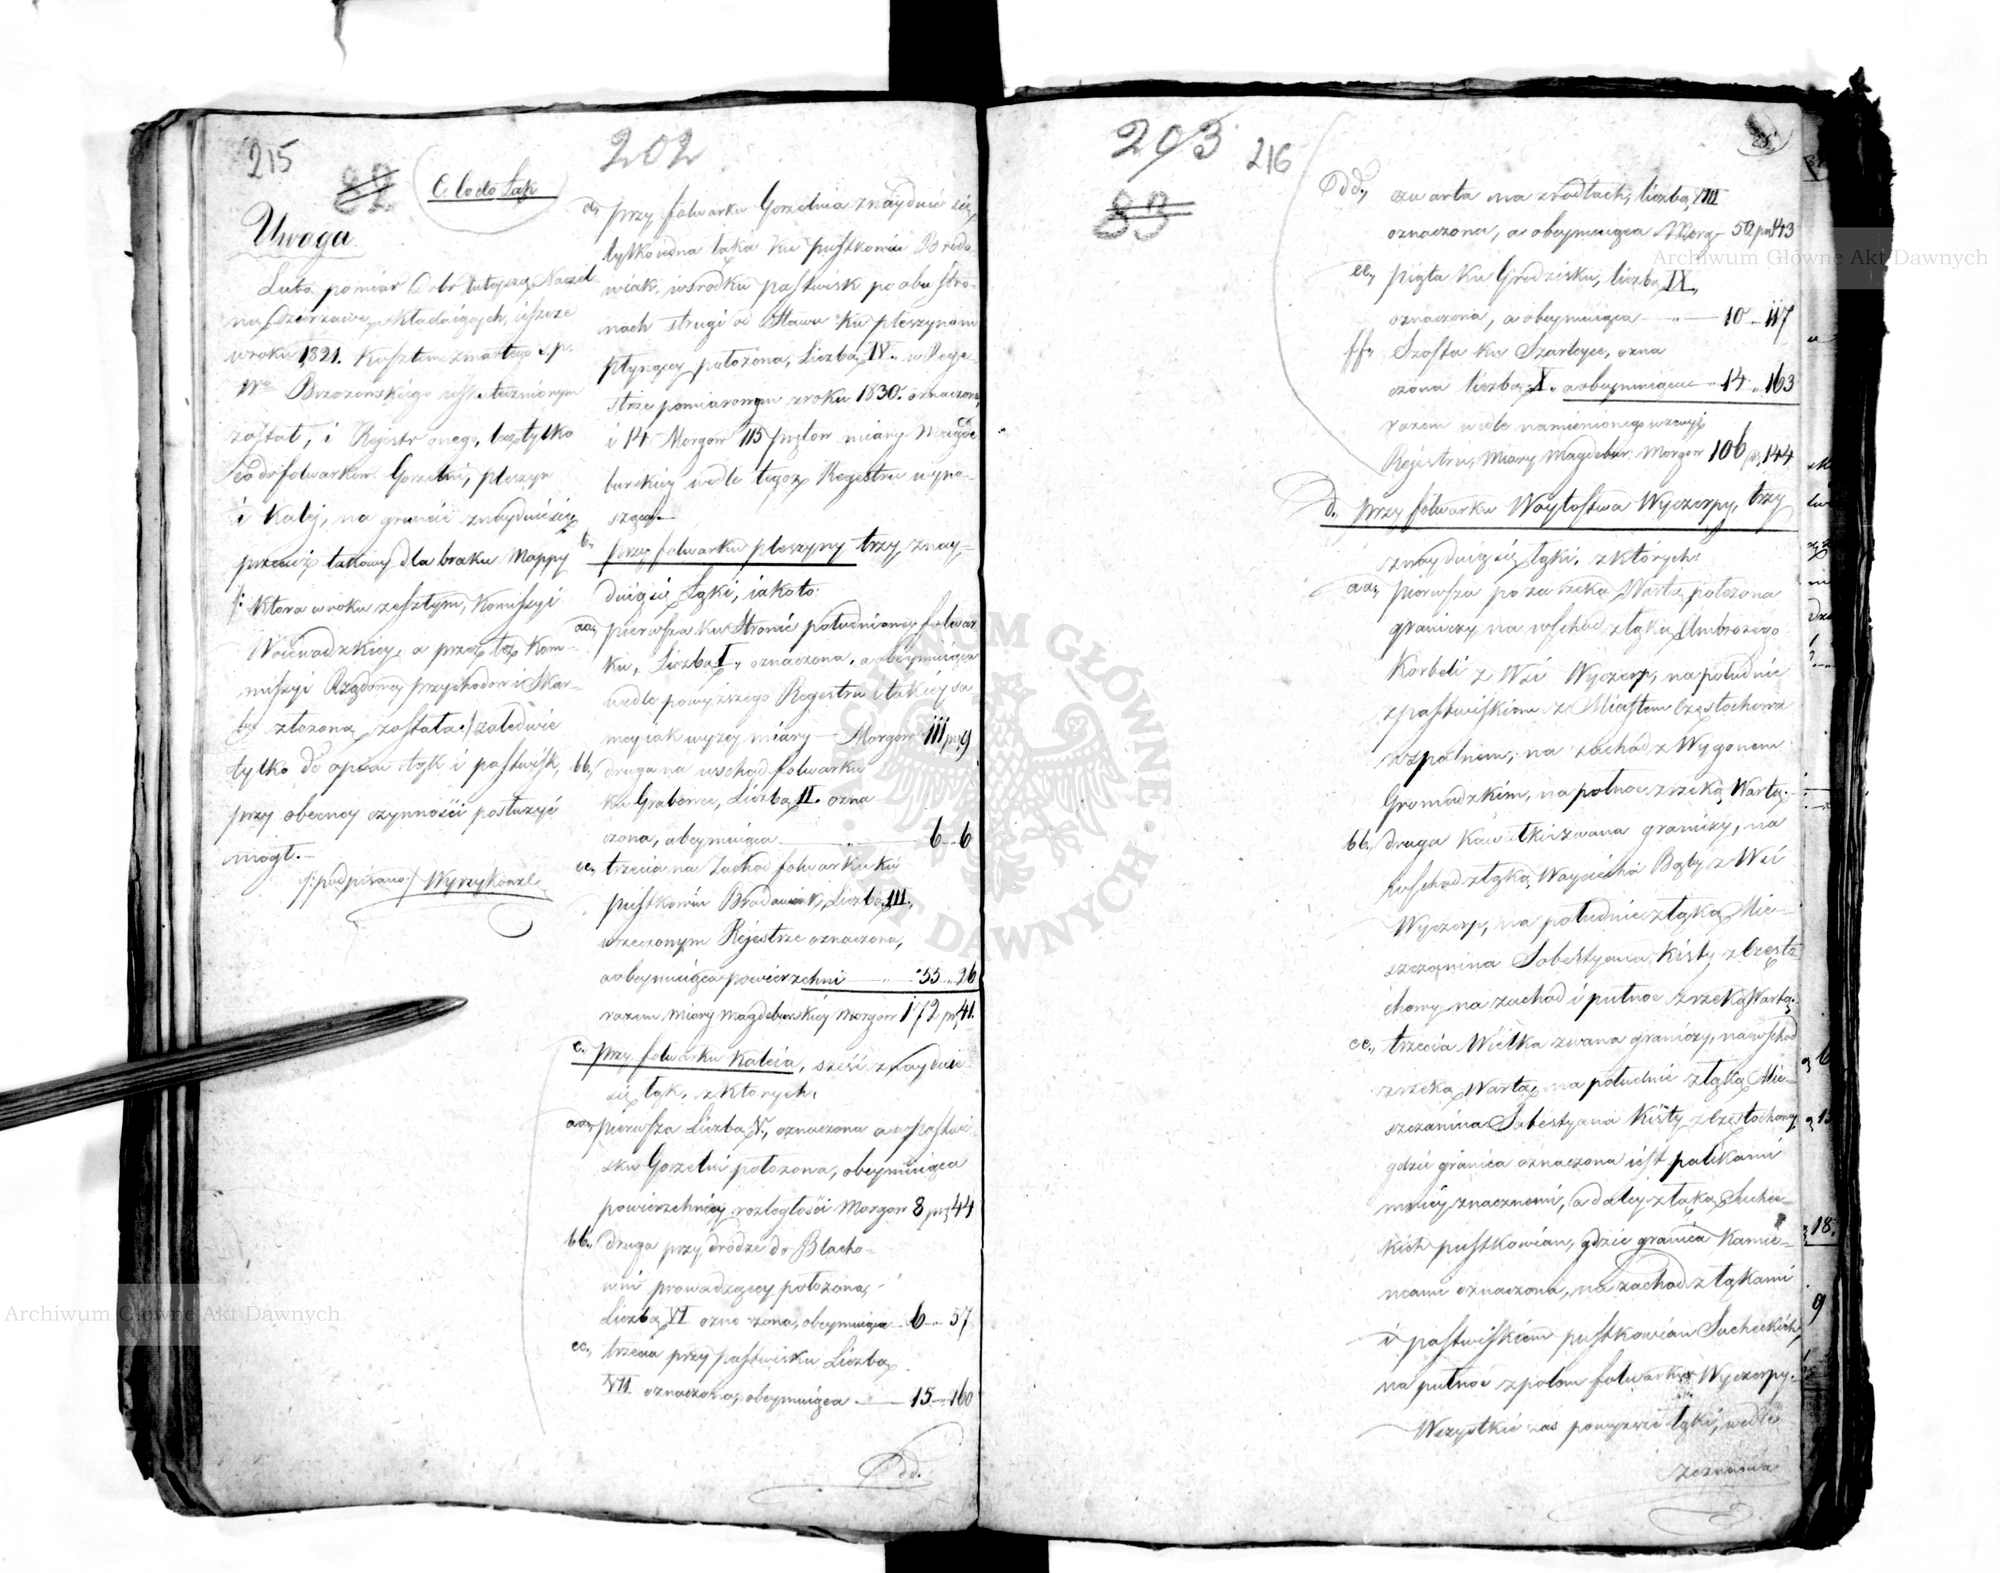 215
82
C. Co do Łąk
202
Uwaga
Lubo pomiar Dóbr tutejszą Naczel
ną Dzierżawę składaiących, ieszcze
w roku 1821. kosztem zmarłego ś. p.
Wo Brzozowskiego uskuteczniony
został, i Rejestr onego, lecz tylko
co do folwarków Gorzelni, Pleszyn
i Kalej, na gruncie znayduie się,
przecież takowy dla braku Mappy
/: która w roku zeszłym, Kommissyi
Woiewódzkiey, a przez też Kom-
missyi Rządowey Przychodów i Skar-
bu złożoną została :/ zaledwie
tylko do opisu łąk i pastwisk,
przy obecney czynności posłużyć
mógł.
/: podpisano :/ Wyrzykowski
a, przy folwarku Gorzelnia znayduie się
tylko iedna łąka ku pustkowiu Broda
wiak, w środku pastwisk po obu stro-
nach strugi od Stawu ku Pleszynom
płynącey położona, Liczbą IV. w Reje
strze pomiarowym z roku 1830. oznaczona,
i 14 Morgów 115 prętów miary Magde
burskiey wedle tegoż Regestru wyno-
sząca.
b, przy folwarku Pleszyny trzy znay-
duią się Łąki, iako to:
aa, pierwsza ku Stronie południowey folwar
ku, Liczbą I, oznaczona, a obeymuiąca
wedle powyższego Regestru i takiey sa
mey iak wyżey miary — Morgów 111 pr. 9
bb, druga na wschod folwarku
ku Grabowce, Liczbą II. ozna
czona, obeymuiąca 6 „ 6
cc, trzecia na Zachod folwarku ku
pustkowiu Brodawiak, Liczbą III.,
w rzeczonym Rejestrze oznaczona,
a obeymuiąca powierzchni 55 „ 26
razem miary magdeburskiey Morgów 172 pr. 41.
c. Przy folwarku Kaleia, sześć znayduie
się łąk, z których:
aa, pierwsza Liczbą V., oznaczona a w pastwi
sku Gorzelni położona, obeymuiąca
powierzchniey rozległości Morgów 8 pr. 44
bb, druga przy drodze do Blacho-
wni prowadzącey położona,
Liczbą VI oznaczona, obeymuiąca 6 „ 57
cc, trzecia przy pastwisku Liczbą
VII oznaczona, obeymuiąca 15 „ 160
dd.
203
216
83
dd, czwarta na zrodłach, liczbą VIII
oznaczona, a obeymuiąca Morg. 50 pr. 43
ee, piąta ku Grodzisku, liczbą IX,
oznaczona, a obeymuiąca 10 „ 117
ff, Szosta ku Szarleyce, ozna
czona liczbą X. a obeymuiąca 14 „ 163
razem wedle namienionego wyżej
Rejestru, Miary Magdebur. Morgow 106 pr. 144
d., przy folwarku Woytostwa Wyczerpy, trzy
znayduią się łąki, z których:
aa, Pierwsza po za rzeką Wartą położona
graniczy na wschod z łąką Ambrożego
Korbeli z Wsi Wyczerp, na południe
z pastwiskiem z Miastem Częstochowa
wspolnem, na zachod z Wygonem
Gromadzkim, na połnoc z rzeką Wartą.
bb., druga Kawałki zwana graniczy, na
wschod z łąką Woyciecha Bąby z Wsi
Wyczerp, na południe z łąką Mie-
szczanina Sobestyana Kisty z Często
chowy na zachod i pułnoc z rzeką Wartą.
cc., trzecia Wielka zwana graniczy, na wschod
z rzeką Wartą, na południe z łąką Mie-
szczanina Sebestyana Kisty z Częstochowy,
gdzie granica oznaczona iest palikami
mniey znacznemi, a daley z łąką Suchec-
kich pustkowian, gdzie granica Kamie-
niami oznaczona, na zachod z łąkami
i pastwiskiem pustkowian Sucheckich,
na pułnoc z polem folwarku Wyczerpy.
Wszystkie zaś powyższe łąki, wedle
zeznania
18.
9
Archiwum Główne Akt Dawnych
Archiwum Główne Akt Dawnych
ARCHIWUM GŁÓWNE AKT DAWNYCH